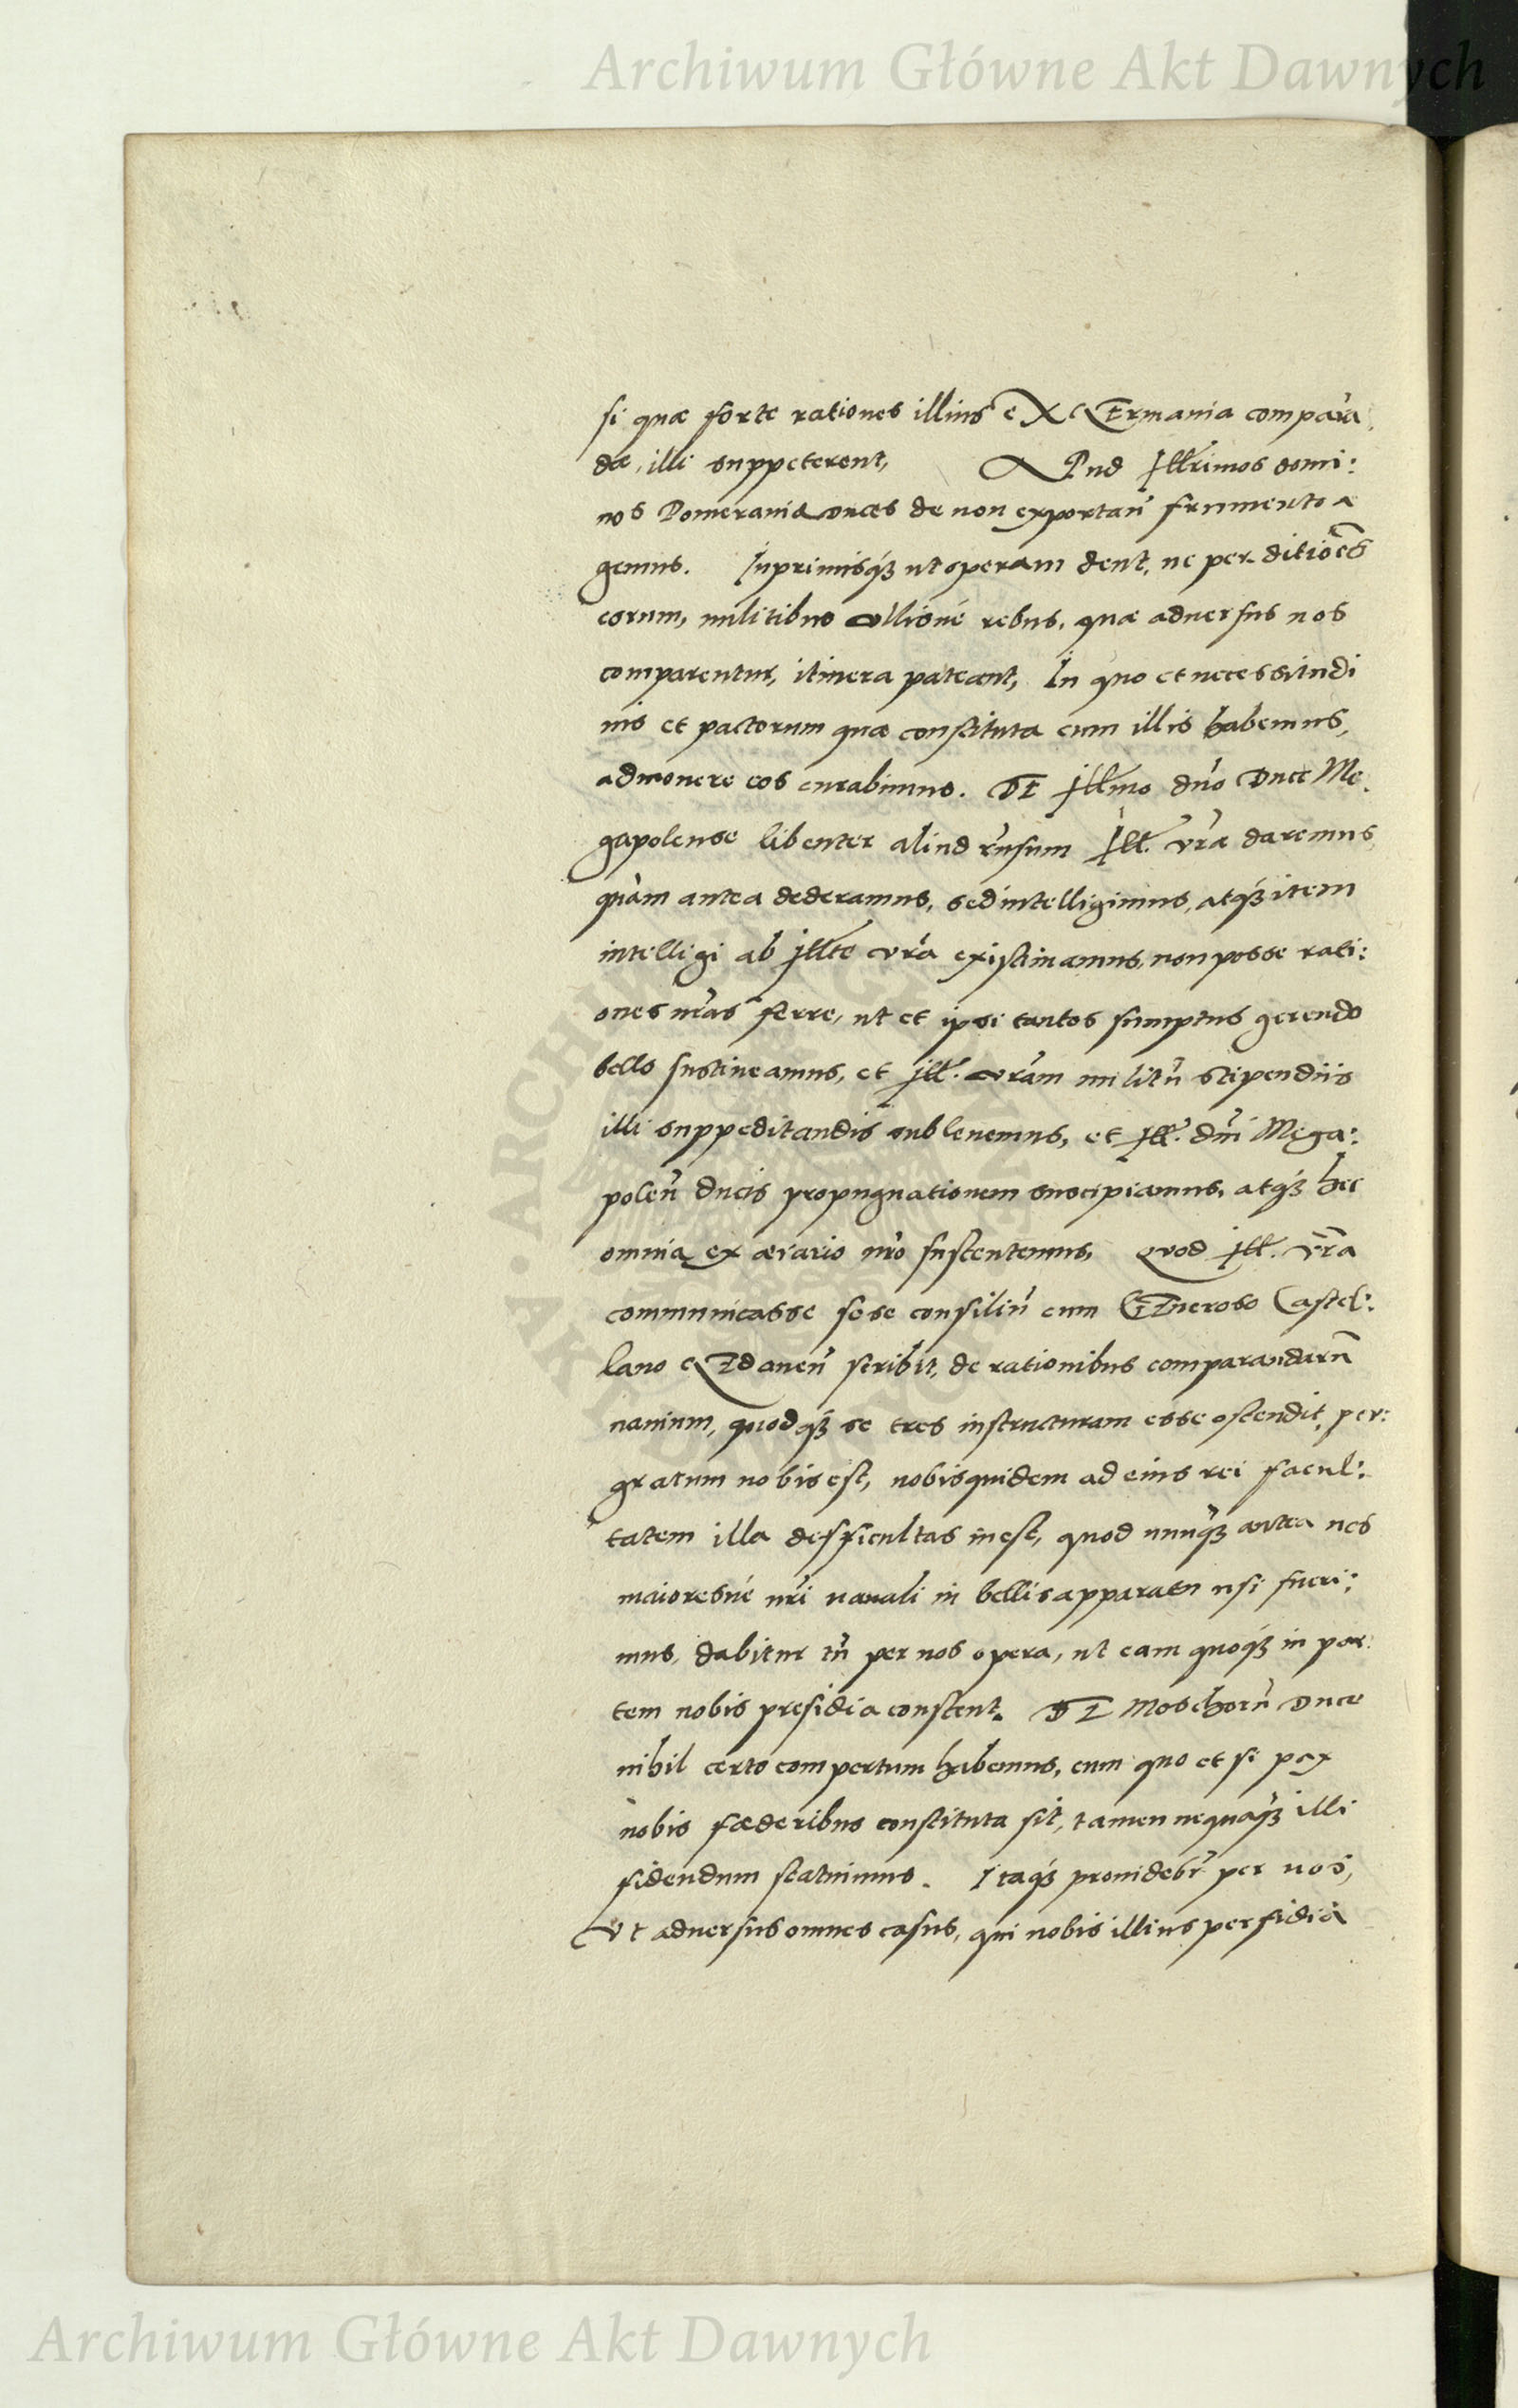 Archiwum Główne Akt Dawnych
si quæ forte rationes illius eX GErmania comparã
dæ, illi suppeterent, APud Illrimos domi:
nos Pomeraniæ duces de non exportañ frumento a
gemus. Inprimisq́ꝫ ut operam dent, ne per ditiões
eorum, militibus ulliśué rebus, quæ aduersus nos
comparentur, itinera pateant, In quo et necessitudi
nis et pactorum quæ constituta cum illis habemus,
admonere eos curabimus. DE Illmo dño Duce Me.
gapolense libenter aliud rñsum Ill. vrã daremus,
quàm antea dederamus, sed intelligimus, atq́ꝫ item
intelligi ab Illte vrã existimamus, non posse rati:
ones nrãs ferre, ut et ipsi tantos sumptus gerendo
bello sustineamus, et Ill. vrãm militũ stipendiis
illi suppeditandis subleuemus, et Ill. dñi Mega:
poleñ ducis propugnationem suscipiamus, atq́ꝫ hec
omnia ex ærario nrõ sustentemus, Quod Ill. vrã
communicasse sese consiliũ cum GEneroso Castel:
lano GEdaneñ scribit, de rationibus comparandarũ
nauium, quodq́ꝫ se tres instructuram esse ostendit, per:
gratum nobis est, nobis quidem ad eius rei facul:
tatem illa difficultas inest, quod nunq̃ꝫ antea nos
maioresúe nrĩ nauali in bellis apparatu usi fueri:
mus, dabitur tñ per nos opera, ut eam quoq́ꝫ in par:
tem nobis presidia constent. DE Moschorũ Duce
nihil certo compertum habemus, cum quo et si pax
nobis fæderibus constituta sit, tamen nequaq̃ꝫ illi
fidendum statuimus. Itaq́ꝫ prouidebr̃ per nos,
Vt aduersus omnes casus, qui nobis illius perfidia
Archiwum Główne Akt Dawnych